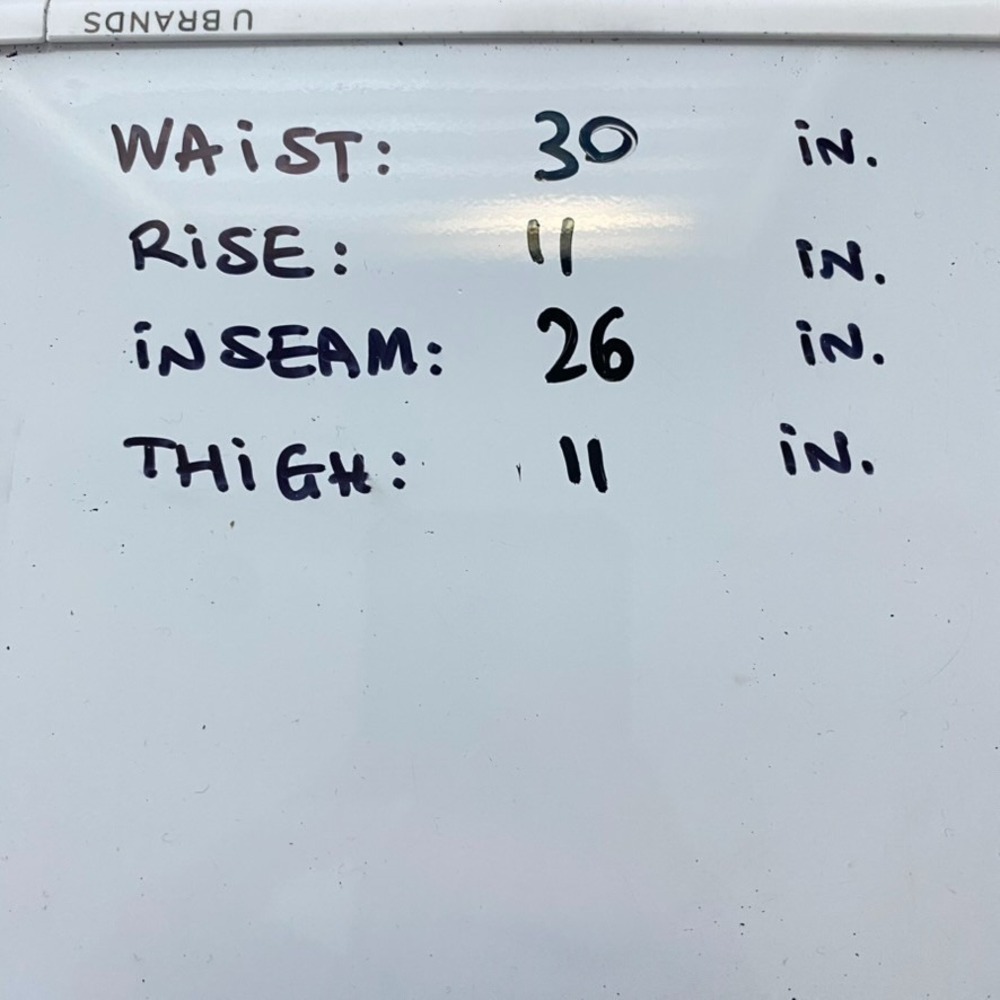 U BRANDS
WAiST: 30 iN.
RiSE: 11 iN.
iNSEAM: 26 iN.
THiGH: 11 iN.